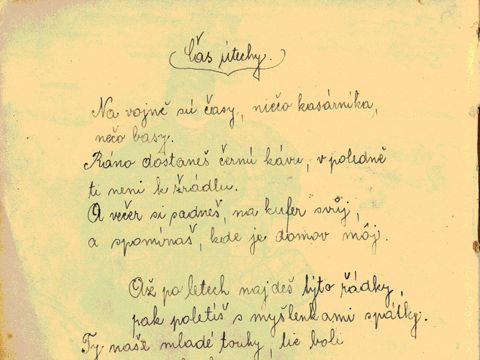 Čas útechy.
Na vojně sú časy, niečo kasárnika,
nečo basy.
Ráno dostaneš černú kávu, v poledně
ti neni k žrádlu.
A večer si sadneš, na kufer svůj,
a spomínaš, kde je domov můj.
Až po letech najdeš tyto řádky,
pak poletíš s myšlenkami spátky.
Ty naše mladé touhy, lic boli